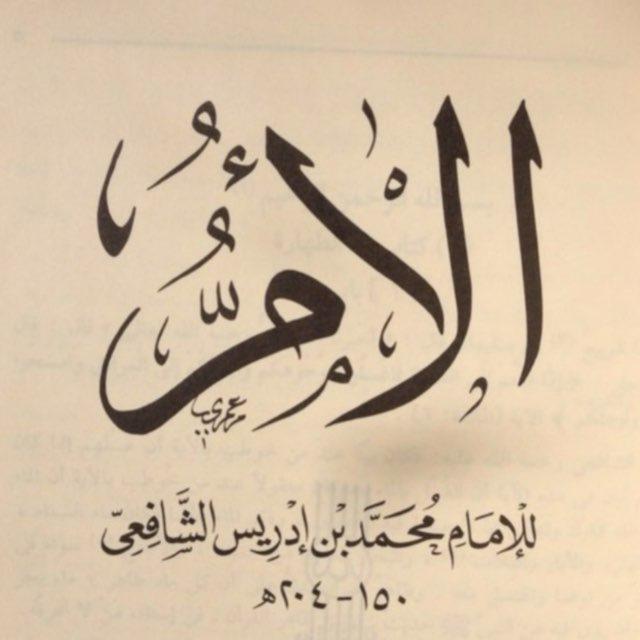 الأُمُّ
للإمَام مُحَمَّد بْن إدْرِيس الشَّافِعِيّ
١٥٠ - ٢٠٤ هـ